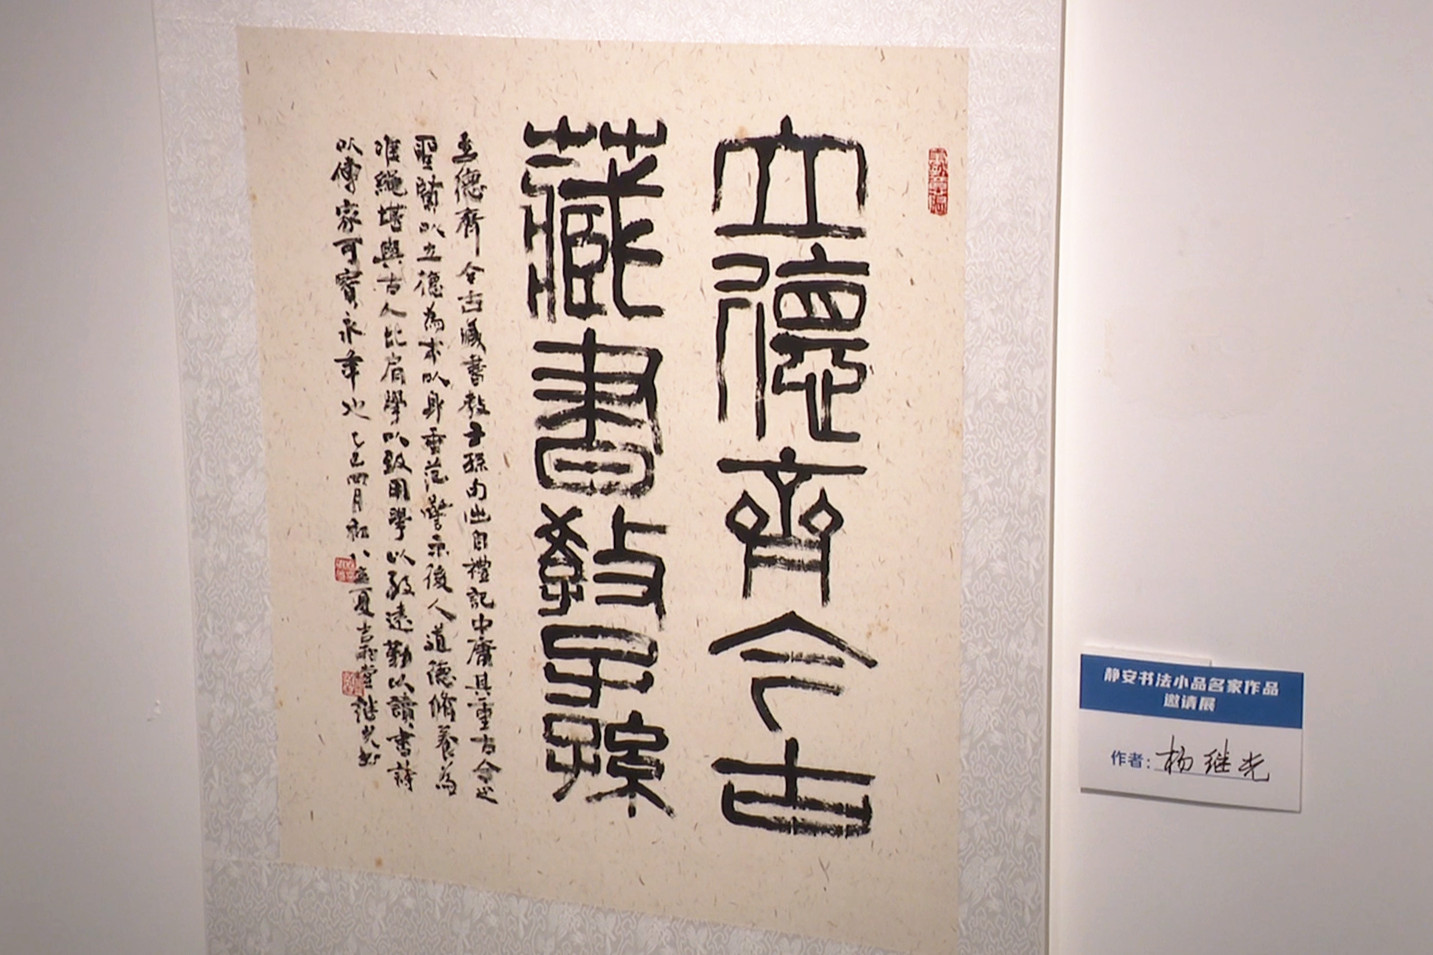 立德齊今古
藏書教子孫
立德齊今古藏書教子孫句出自禮記中庸其重古今之
聖賢以立德為本以身垂范警示後人道德脩養為
準繩堪與古人比肩學以致用學以致遠勤以讀書詩
以傳家可寳永年也乙巳四月初八立夏嘉堂继光書
静安书法小品名家作品
邀请展
作者：杨继光